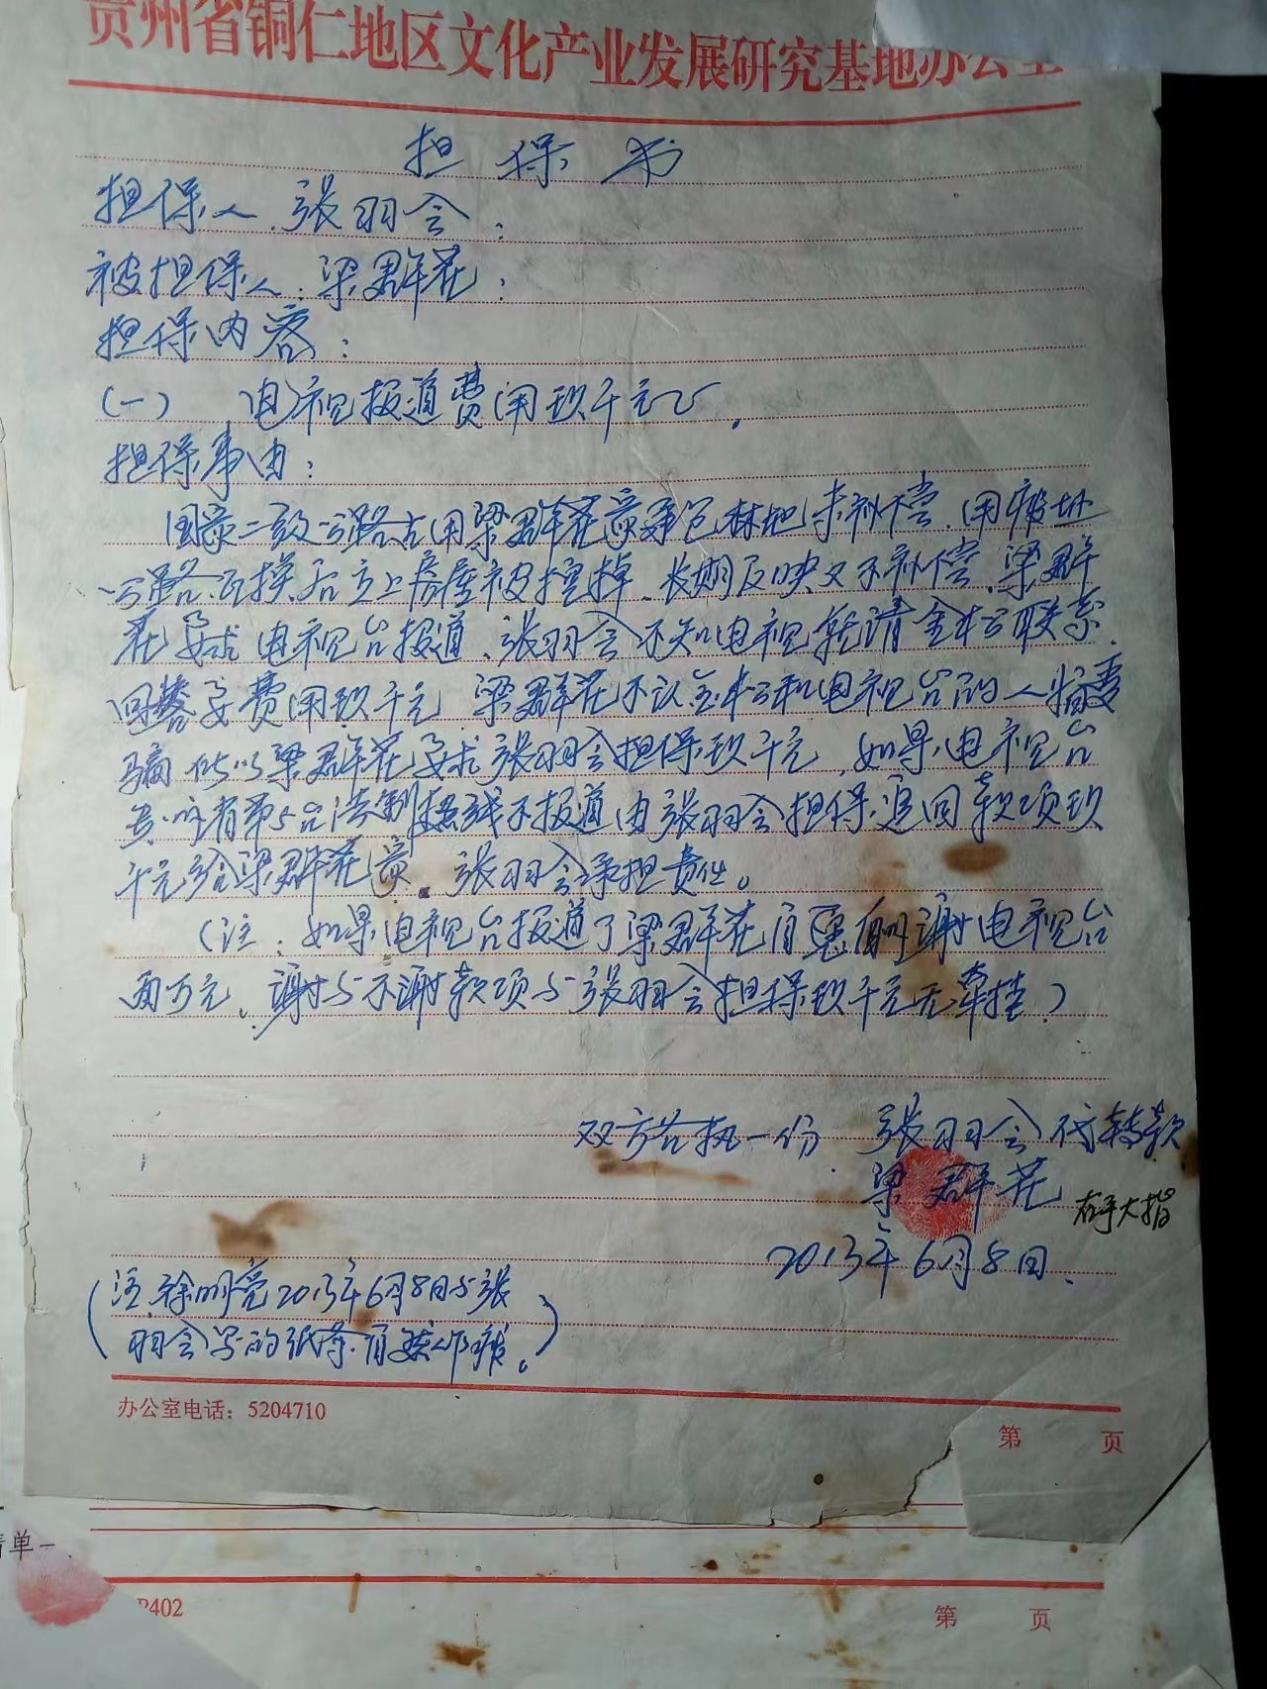 贵州省铜仁地区文化产业发展研究基地办公室
担保书
担保人.张羽会:
被担保人:梁群花:
担保内容:
(一) 电视报道费用玖千元.
担保事由:
国家二级公路占用梁群花家承包林地未补偿.用
公路后房屋被挖掉.长期反映又不补偿.梁群
花要求电视台报道.张羽会不知电视请联系.
回答要费用玖千元 梁群花不认和电视台的人怕受
骗.所以梁群花要求张羽会担保玖千元.如果电视台
第5台法制不报道由张羽会担保追回款项玖
千元给梁群花家.张羽会承担责任。
(注:如果电视台报道了梁群花自愿酬谢电视台
两万元.谢与不谢款项与张羽会担保玖千元无牵挂)
双方各执一份 张羽会代转款
梁群花 右手大指
2013年6月8日.
(注.徐明亮2013年6月8日与张
羽会写的纸条自然作废。)
办公室电话:5204710
第 页
清单一
P402
第 页